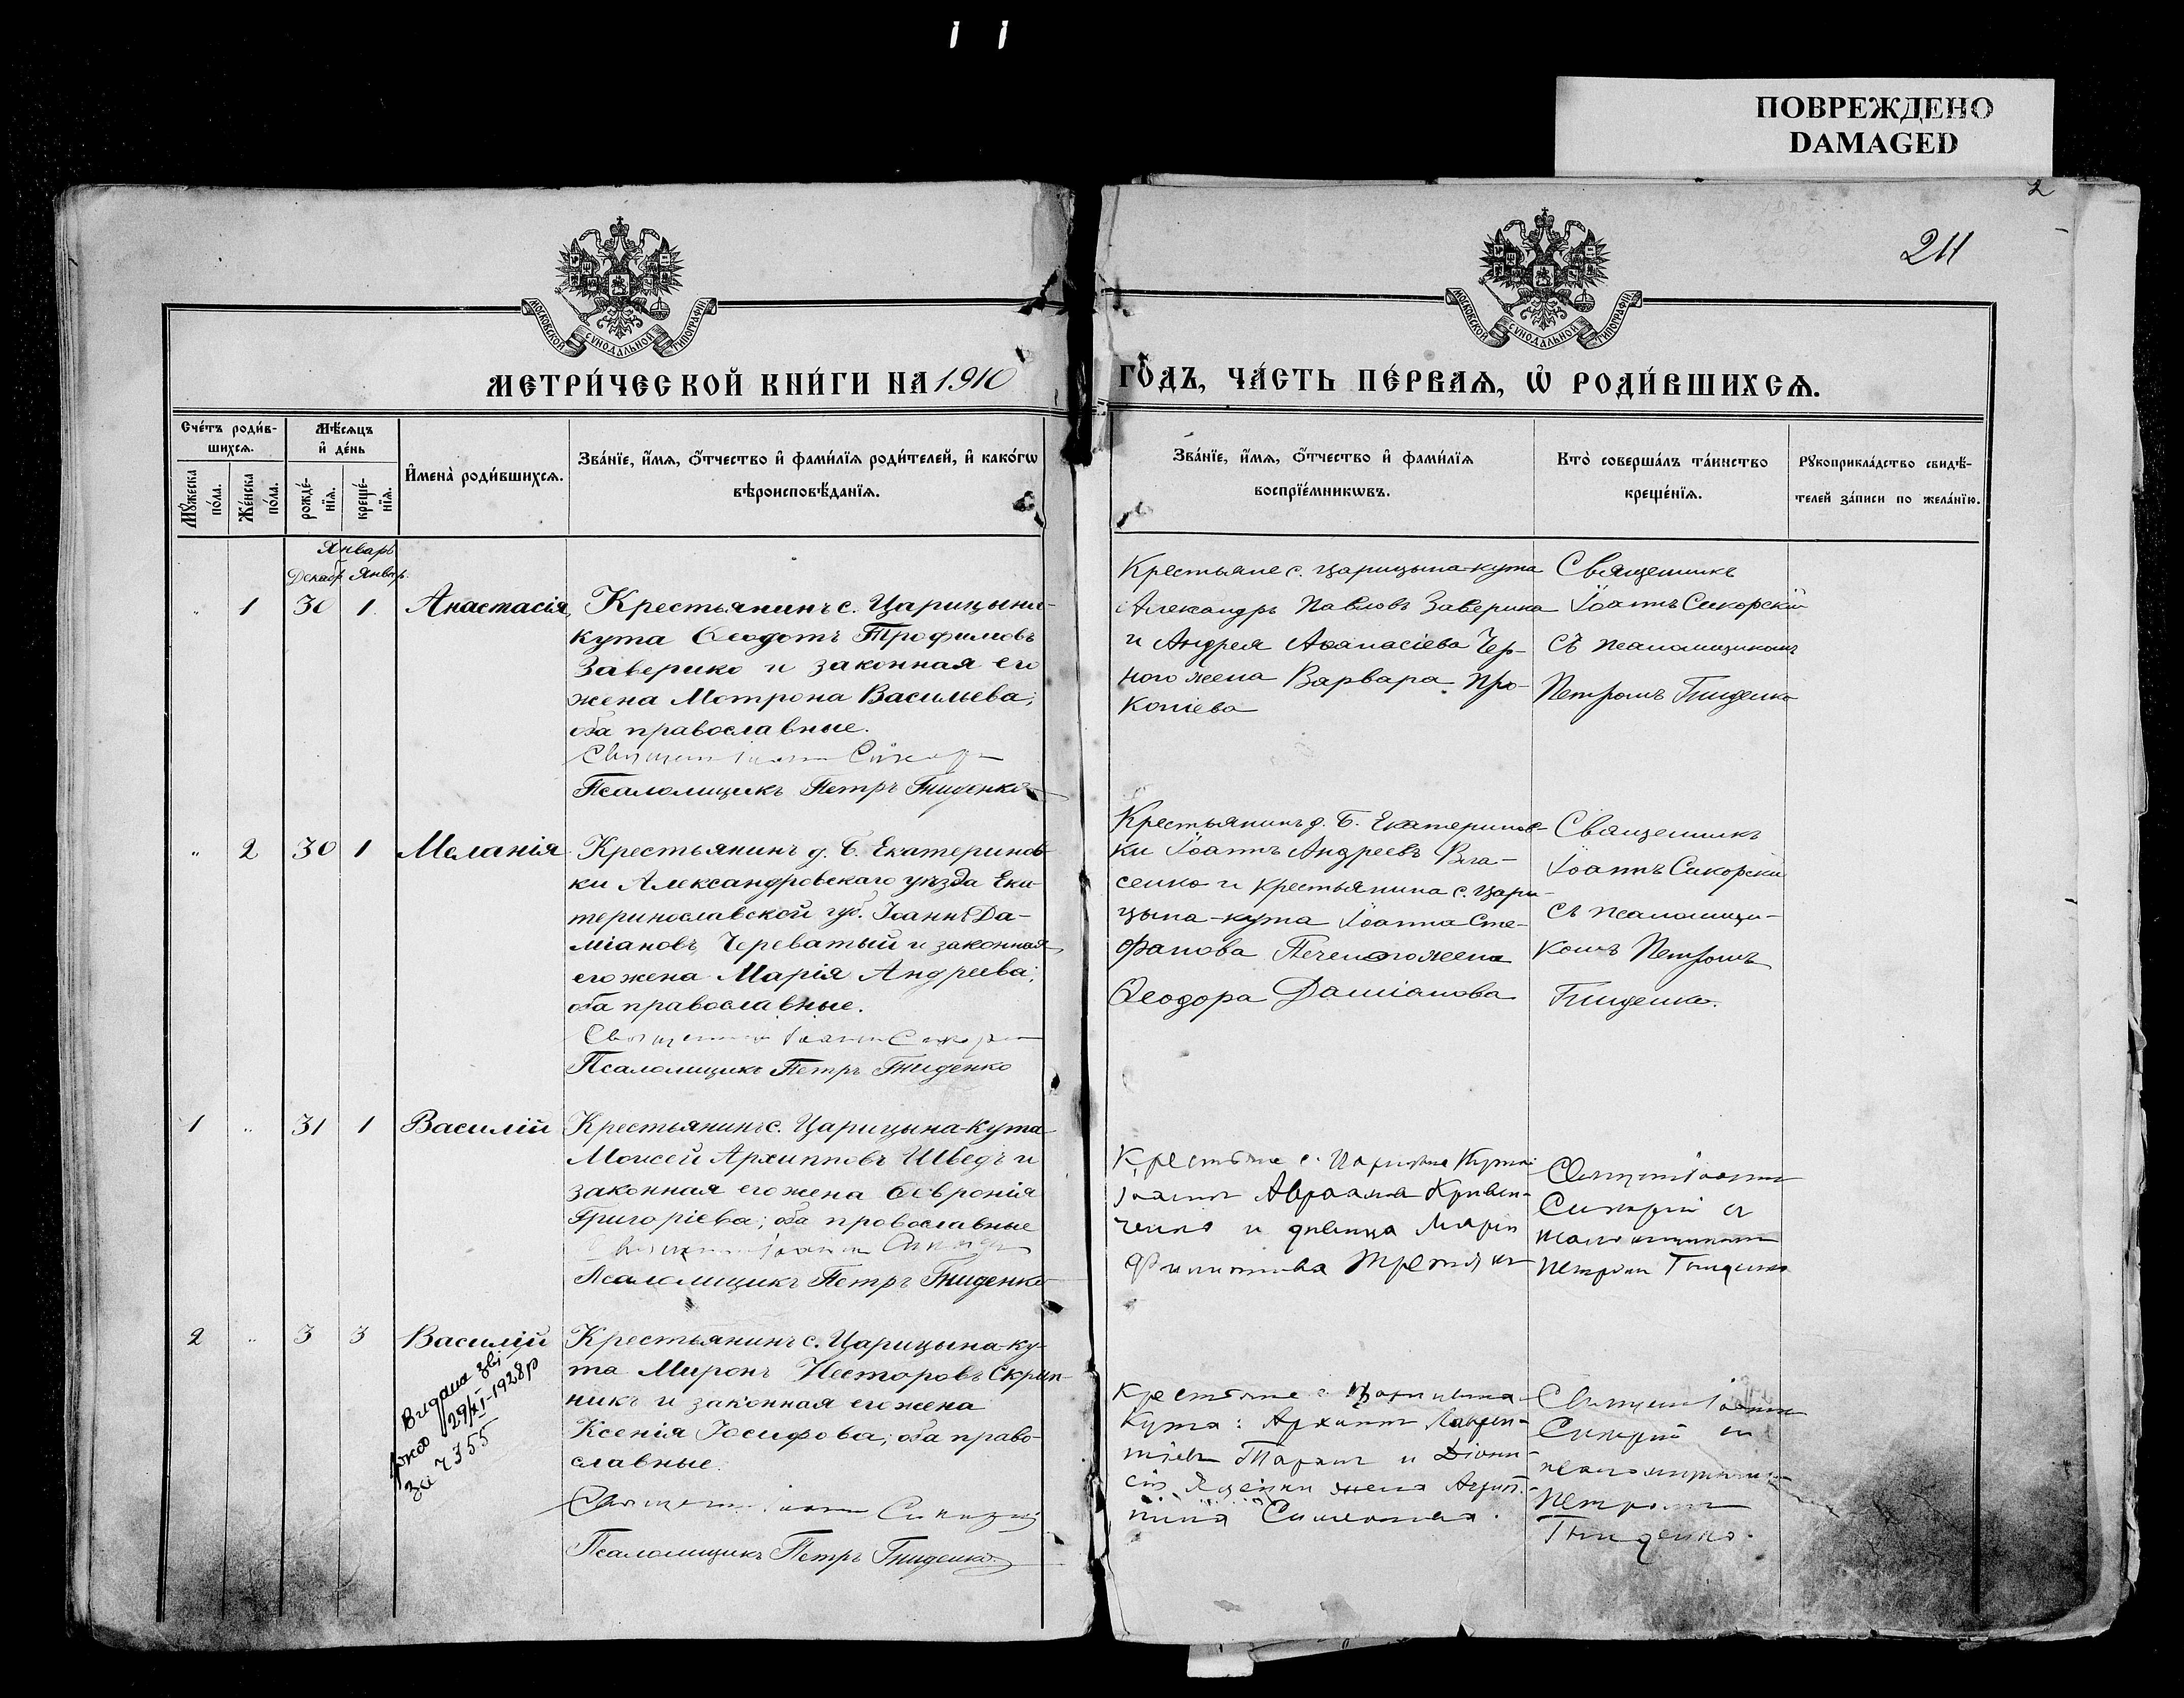 ПОВРЕЖДЕНО
DAMAGED
2
211
МОСКОВСКОЙ СѴНОДАЛЬНОЙ ТИПОГРАФІИ
МОСКОВСКОЙ СѴНОДАЛЬНОЙ ТИПОГРАФІИ
МЕТРИ́ЧЕСКОЙ КНИ́ГИ НА 1910
ГО́ДЪ, ЧА́СТЬ ПЕ́РВАѦ, Ѡ҆ РОДИ́ВШИХСѦ.
Сче́тъ роди́в-
шихсѧ.
Мѣ́сѧцъ
и҆ де́нь
Мꙋ́жеска
по́ла.
Же́нска
по́ла.
рожде́-
нїѧ.
креще́-
нїѧ.
И҆мена̀ роди́вшихсѧ.
Зва́нїе, и҆́мѧ, ѻ҆́тчество и҆ фами́лїѧ роди́телей, и҆ како́гѡ
вѣроисповѣ́данїѧ.
Зва́нїе, и҆́мѧ, ѻ҆́тчество и҆ фами́лїѧ
воспрїе́мникѡвъ.
Кто̀ соверша́лъ та́инство
креще́нїѧ.
Рꙋкоприкла́дство свидѣ́-
телей за́писи по жела́нїю.
Январь
Декабр. Январ.
" 1 30 1. Анастасія,
Крестьянинъ с. Царицына-
кута Ѳеодотъ Трофимовъ
Заверико и законная его
жена Мотрона Васильева;
оба православные.
Псаломщикъ Петръ Гниденко
Крестьяне с. Царицына-кута
Александръ Павловъ Заверико
и Андрея Аѳанасіева Чер-
ного жена Варвара Про-
копіева
Священникъ
Іоаннъ Сикорскій
съ псаломщикомъ
Петромъ Гниденко
" 2 30 1 Меланія
Крестьянинъ д. Б. Екатеринов-
ки Александровскаго уѣзда Ека-
теринославской губ. Іоаннъ Да-
міановъ Череватый и законная
его жена Марія Андреева;
оба православные.
Псаломщикъ Петръ Гниденко
Крестьянинъ д. Б. Екатеринов-
ки Іоаннъ Андреевъ Вла-
сенко и крестьянина с. Цари-
цына-кута Іоанна Сте-
фанова жена
Ѳеодора Даміанова
Священникъ
Іоаннъ Сикорскій
съ псаломщи-
комъ Петромъ
Гниденко.
1 " 31 1 Василій
Крестьянинъ с. Царицына-кута
Моисей Архипповъ Шведъ и
законная его жена Ѳевронія
Григоріева; оба православные
Псаломщикъ Петръ Гниденко
Крестьяне с. Царицына Кута:
Іоаннъ Авраамовъ Кривен-
ченко и дѣвица Марія
Филиппова Третяк
Священ. Іоаннъ
Сикорскій съ
псаломщикомъ
Петромъ Гниденко
2 " 3 3 Василій
Видана
29/XI-1928 р
за 7355
Крестьянинъ с. Царицына-ку-
та Миронъ Несторовъ Скрип-
никъ и законная его жена
Ксенія Іосифова; оба право-
славные.
Псаломщикъ Петръ Гниденко.
Крестьяне с. Царицына-
Кута: Архиппъ Лаврен-
тіевъ и Діони-
сія жена Агрип-
пина
Священ. Іоаннъ
Сикорскій съ
псаломщикомъ
Петромъ
Гниденко.